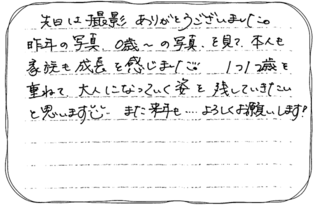 先日は撮影ありがとうございました☺
昨年の写真、0歳〜の写真を見て、本人も
家族も成長を感じました☺ 1つ1つ歳を
重ねて、大人になっていく姿を残していきたい
と思います☺ また来年も…よろしくお願いします!